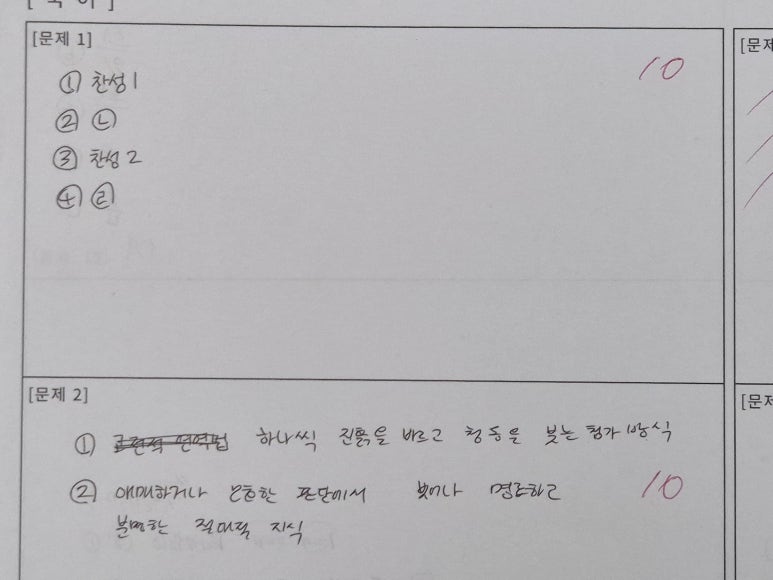 [국어]
[문제 1]
10
① 찬성 1
② ㉡
③ 찬성 2
④ ㉣
[문제 2]
① 하나씩 진흙을 바르고 청동을 붓는 첨가 방식
② 애매하거나 모호한 판단에서 벗어나 명료하고
10
분명한 절대적 지식
[문제
[문제